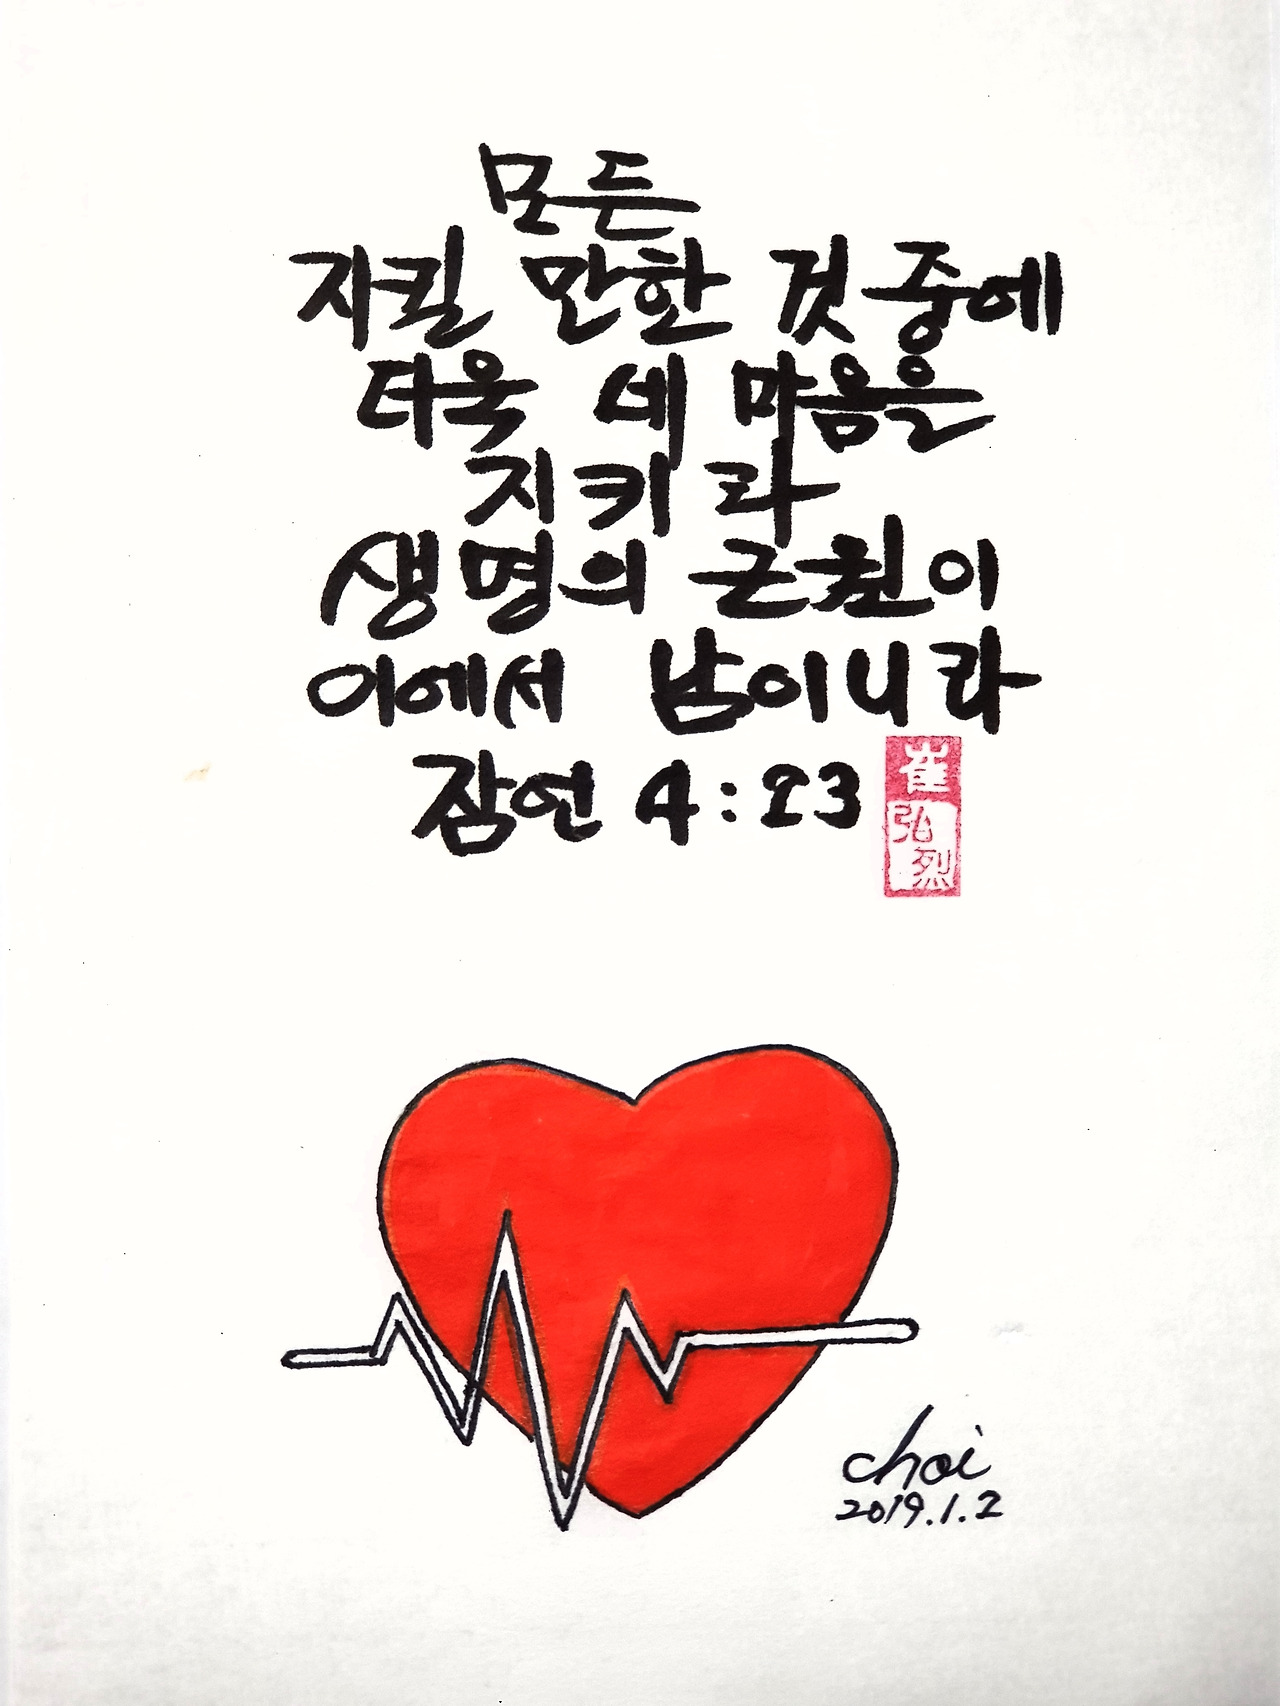 모든
지킬 만한 것 중에
더욱 네 마음을
지키라
생명의 근원이
이에서 남이니라
잠언 4:23
崔
弘
烈
choi
2019.1.2